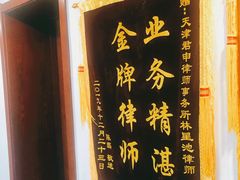 赠：天津君申律师事务所林里池律师
业务精湛
金牌律师
二〇一九年十二月二十三日